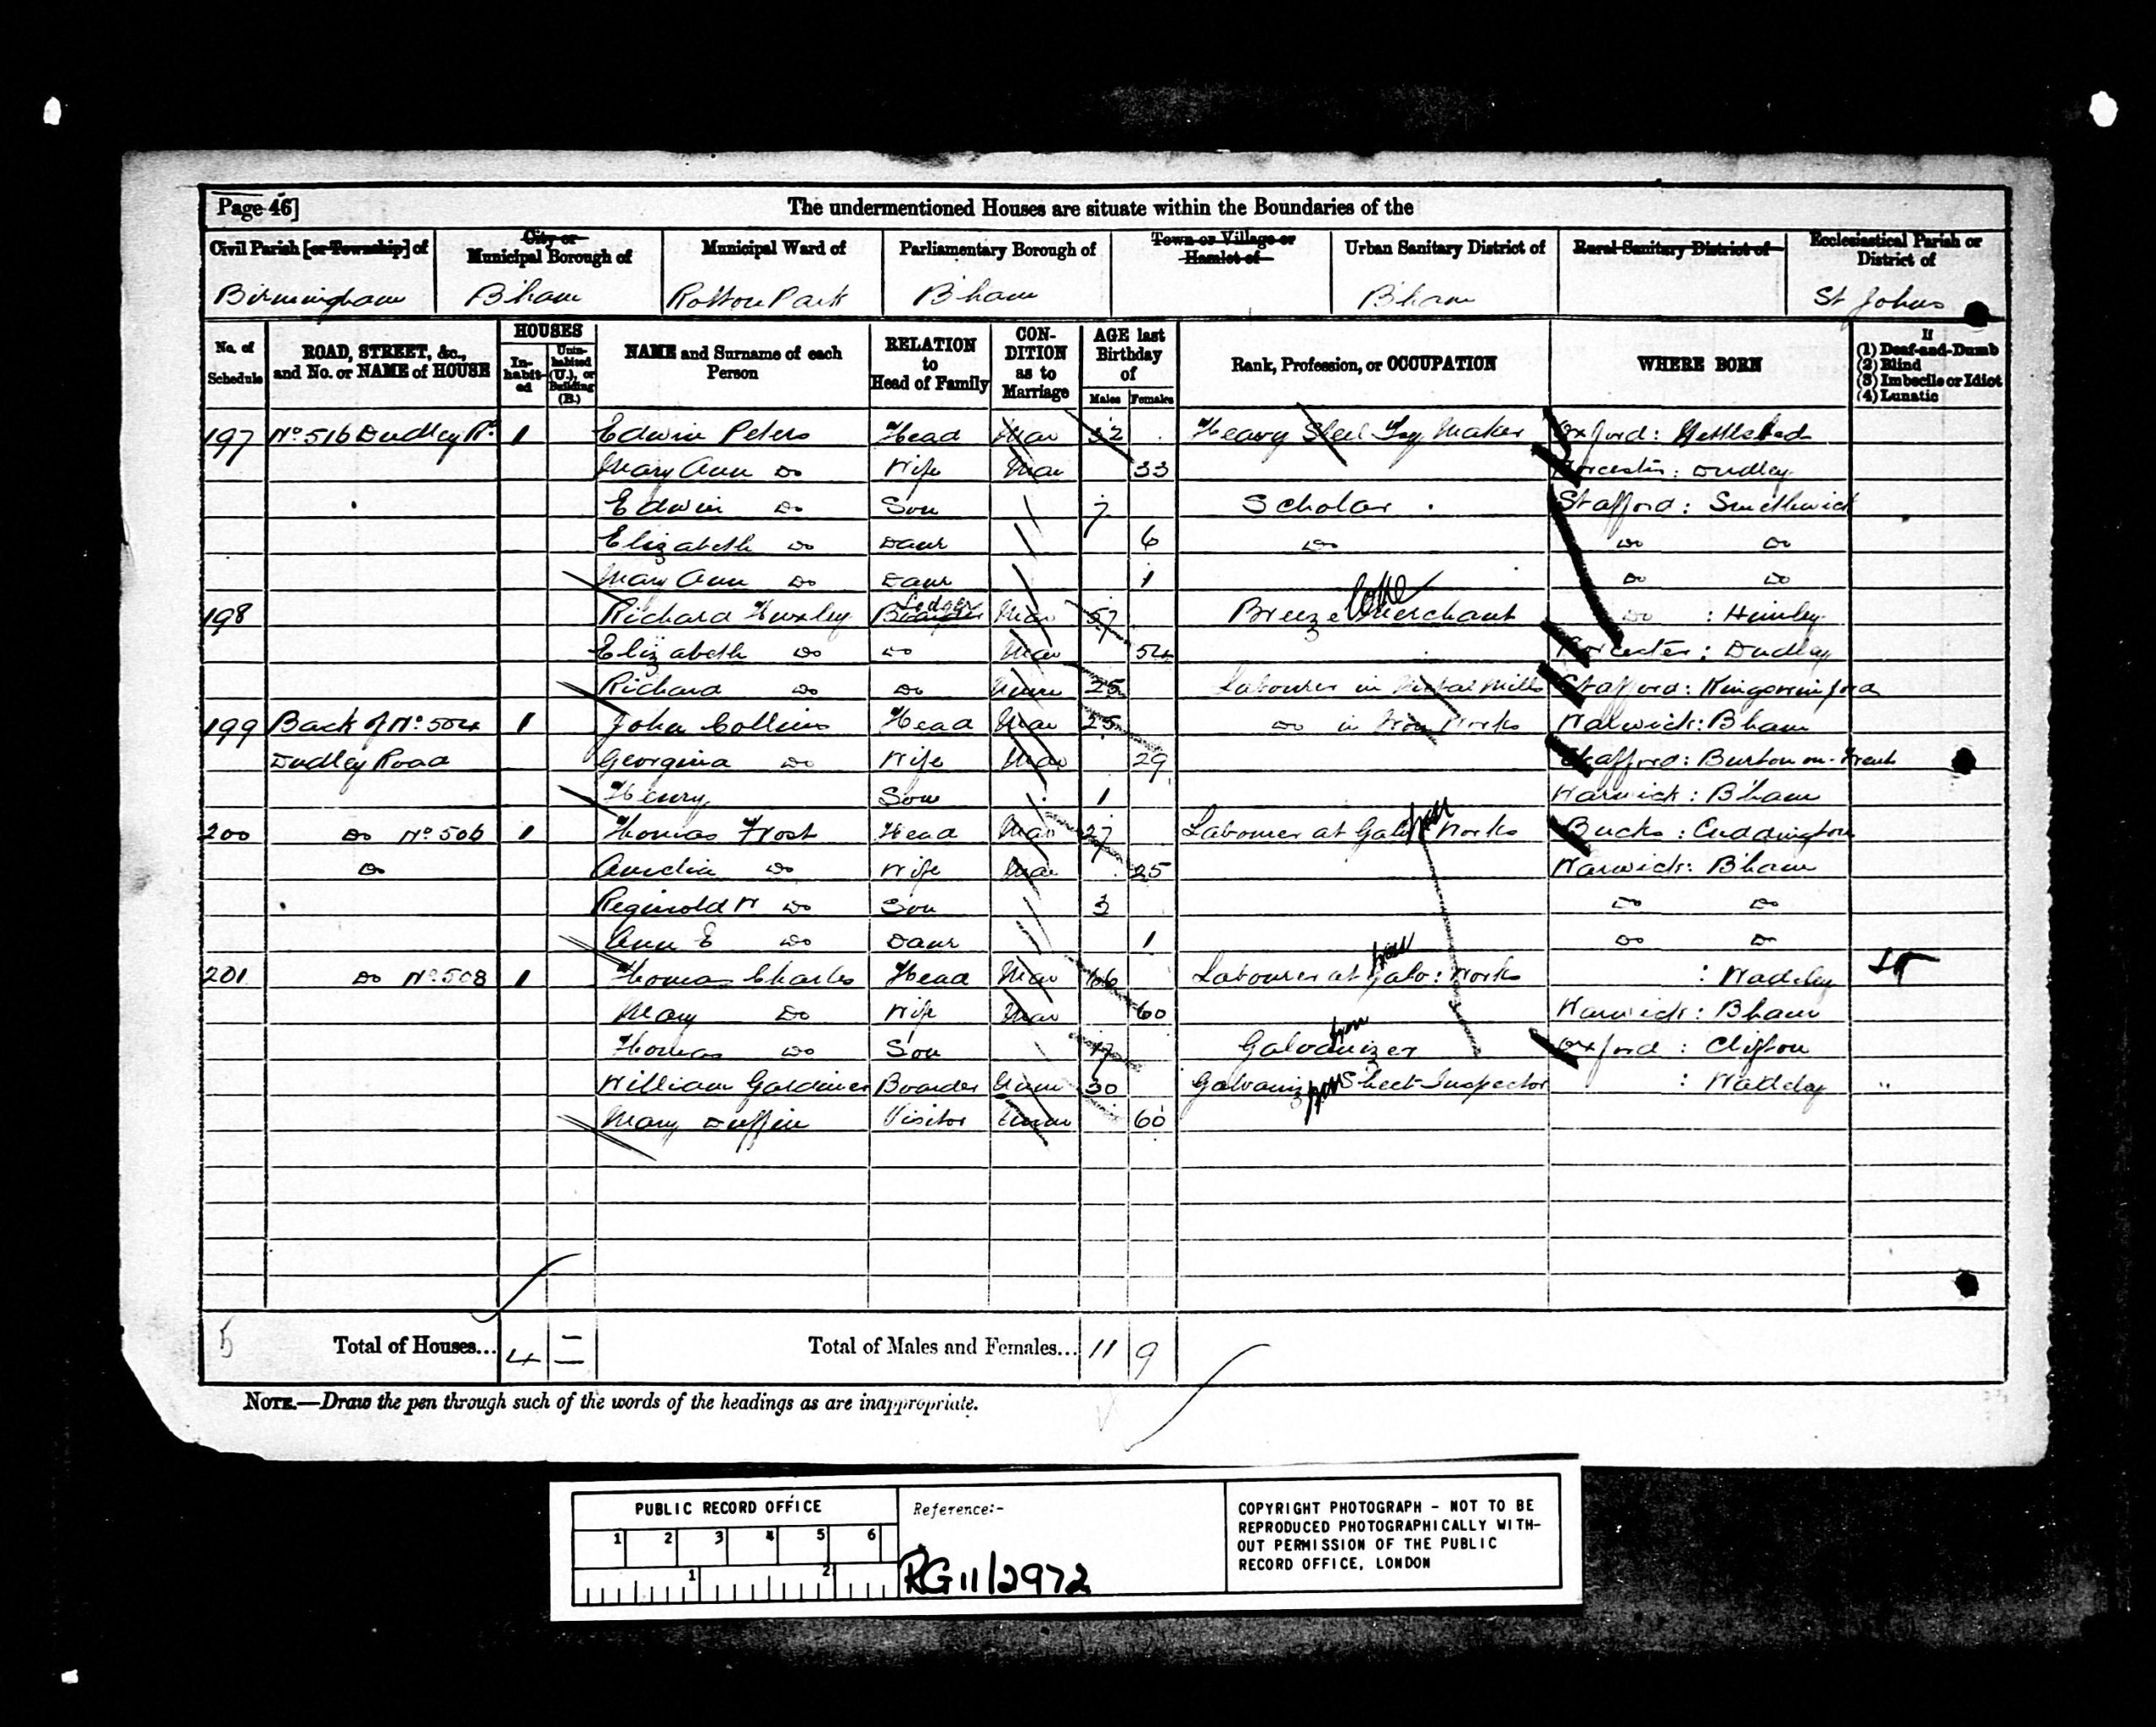 Page 46]
The undermentioned Houses are situate within the Boundaries of the
Civil Parish [or Township] of
City or Municipal Borough of
Municipal Ward of
Parliamentary Borough of
Town or Village or Hamlet of
Urban Sanitary District of
Rural Sanitary District of
Ecclesiastical Parish or District of
Birmingham B'ham Rotton Park B'ham B'ham St Johns
No. of Schedule
ROAD, STREET, &c., and No. or NAME of HOUSE
HOUSES
In-habit-ed
Unin-habited (U.), or Building (B.)
NAME and Surname of each Person
RELATION to Head of Family
CON-DITION as to Marriage
AGE last Birthday of
Males Females
Rank, Profession, or OCCUPATION
WHERE BORN
If
(1) Deaf-and-Dumb
(2) Blind
(3) Imbecile or Idiot
(4) Lunatic
197 No 516 Dudley Rd 1 Edwin Peters Head Mar 32 Heavy Steel Toy Maker Oxford: Nettlebed
Mary Ann Do Wife Mar 33 Worcester: Dudley
Edwin Do Son 7 Scholar Stafford: Smethwick
Elizabeth Do Daur 6 Do Do Do
Mary Ann Do Daur 1 Do Do
198 Richard Huxley Boarder Lodger Mar 57 Breeze Coke Merchant Do : Himley
Elizabeth Do Do Mar 54 Worcester: Dudley
Richard Do Do Unm 25 Labourer in Metal Mills Stafford: Kingswinford
199 Back of No 504 1 John Collins Head Mar 25 Do in Iron Works Warwick: B'ham
Dudley Road Georgina Do Wife Mar 29 Stafford: Burton on Trent
Henry Son 1 Warwick: B'ham
200 Do No 506 1 Thomas Frost Head Mar 27 Labourer at Galv Iron Works Bucks: Cuddington
Do Amelia Do Wife Mar 25 Warwick: B'ham
Reginold W Do Son 3 Do Do
Ann E Do Daur 1 Do Do
201 Do No 508 1 Thomas Charles Head Mar 66 Labourer at Galv: Iron Works :
Mary Do Wife Mar 60 Warwick: B'ham
Thomas Do Son 17 Galvanizer Iron Oxford: Clifton
William Gardiner Boarder Unm 30 Galvaniz Iron Sheet Inspector : "
Mary Duffin Visitor Unm 60
5 Total of Houses... 4 Total of Males and Females... 11 9
NOTE.—Draw the pen through such of the words of the headings as are inappropriate.
PUBLIC RECORD OFFICE
1 2 3 4 5 6
1 2
Reference:-
RG 11/2972
COPYRIGHT PHOTOGRAPH - NOT TO BE
REPRODUCED PHOTOGRAPHICALLY WITH-
OUT PERMISSION OF THE PUBLIC
RECORD OFFICE, LONDON